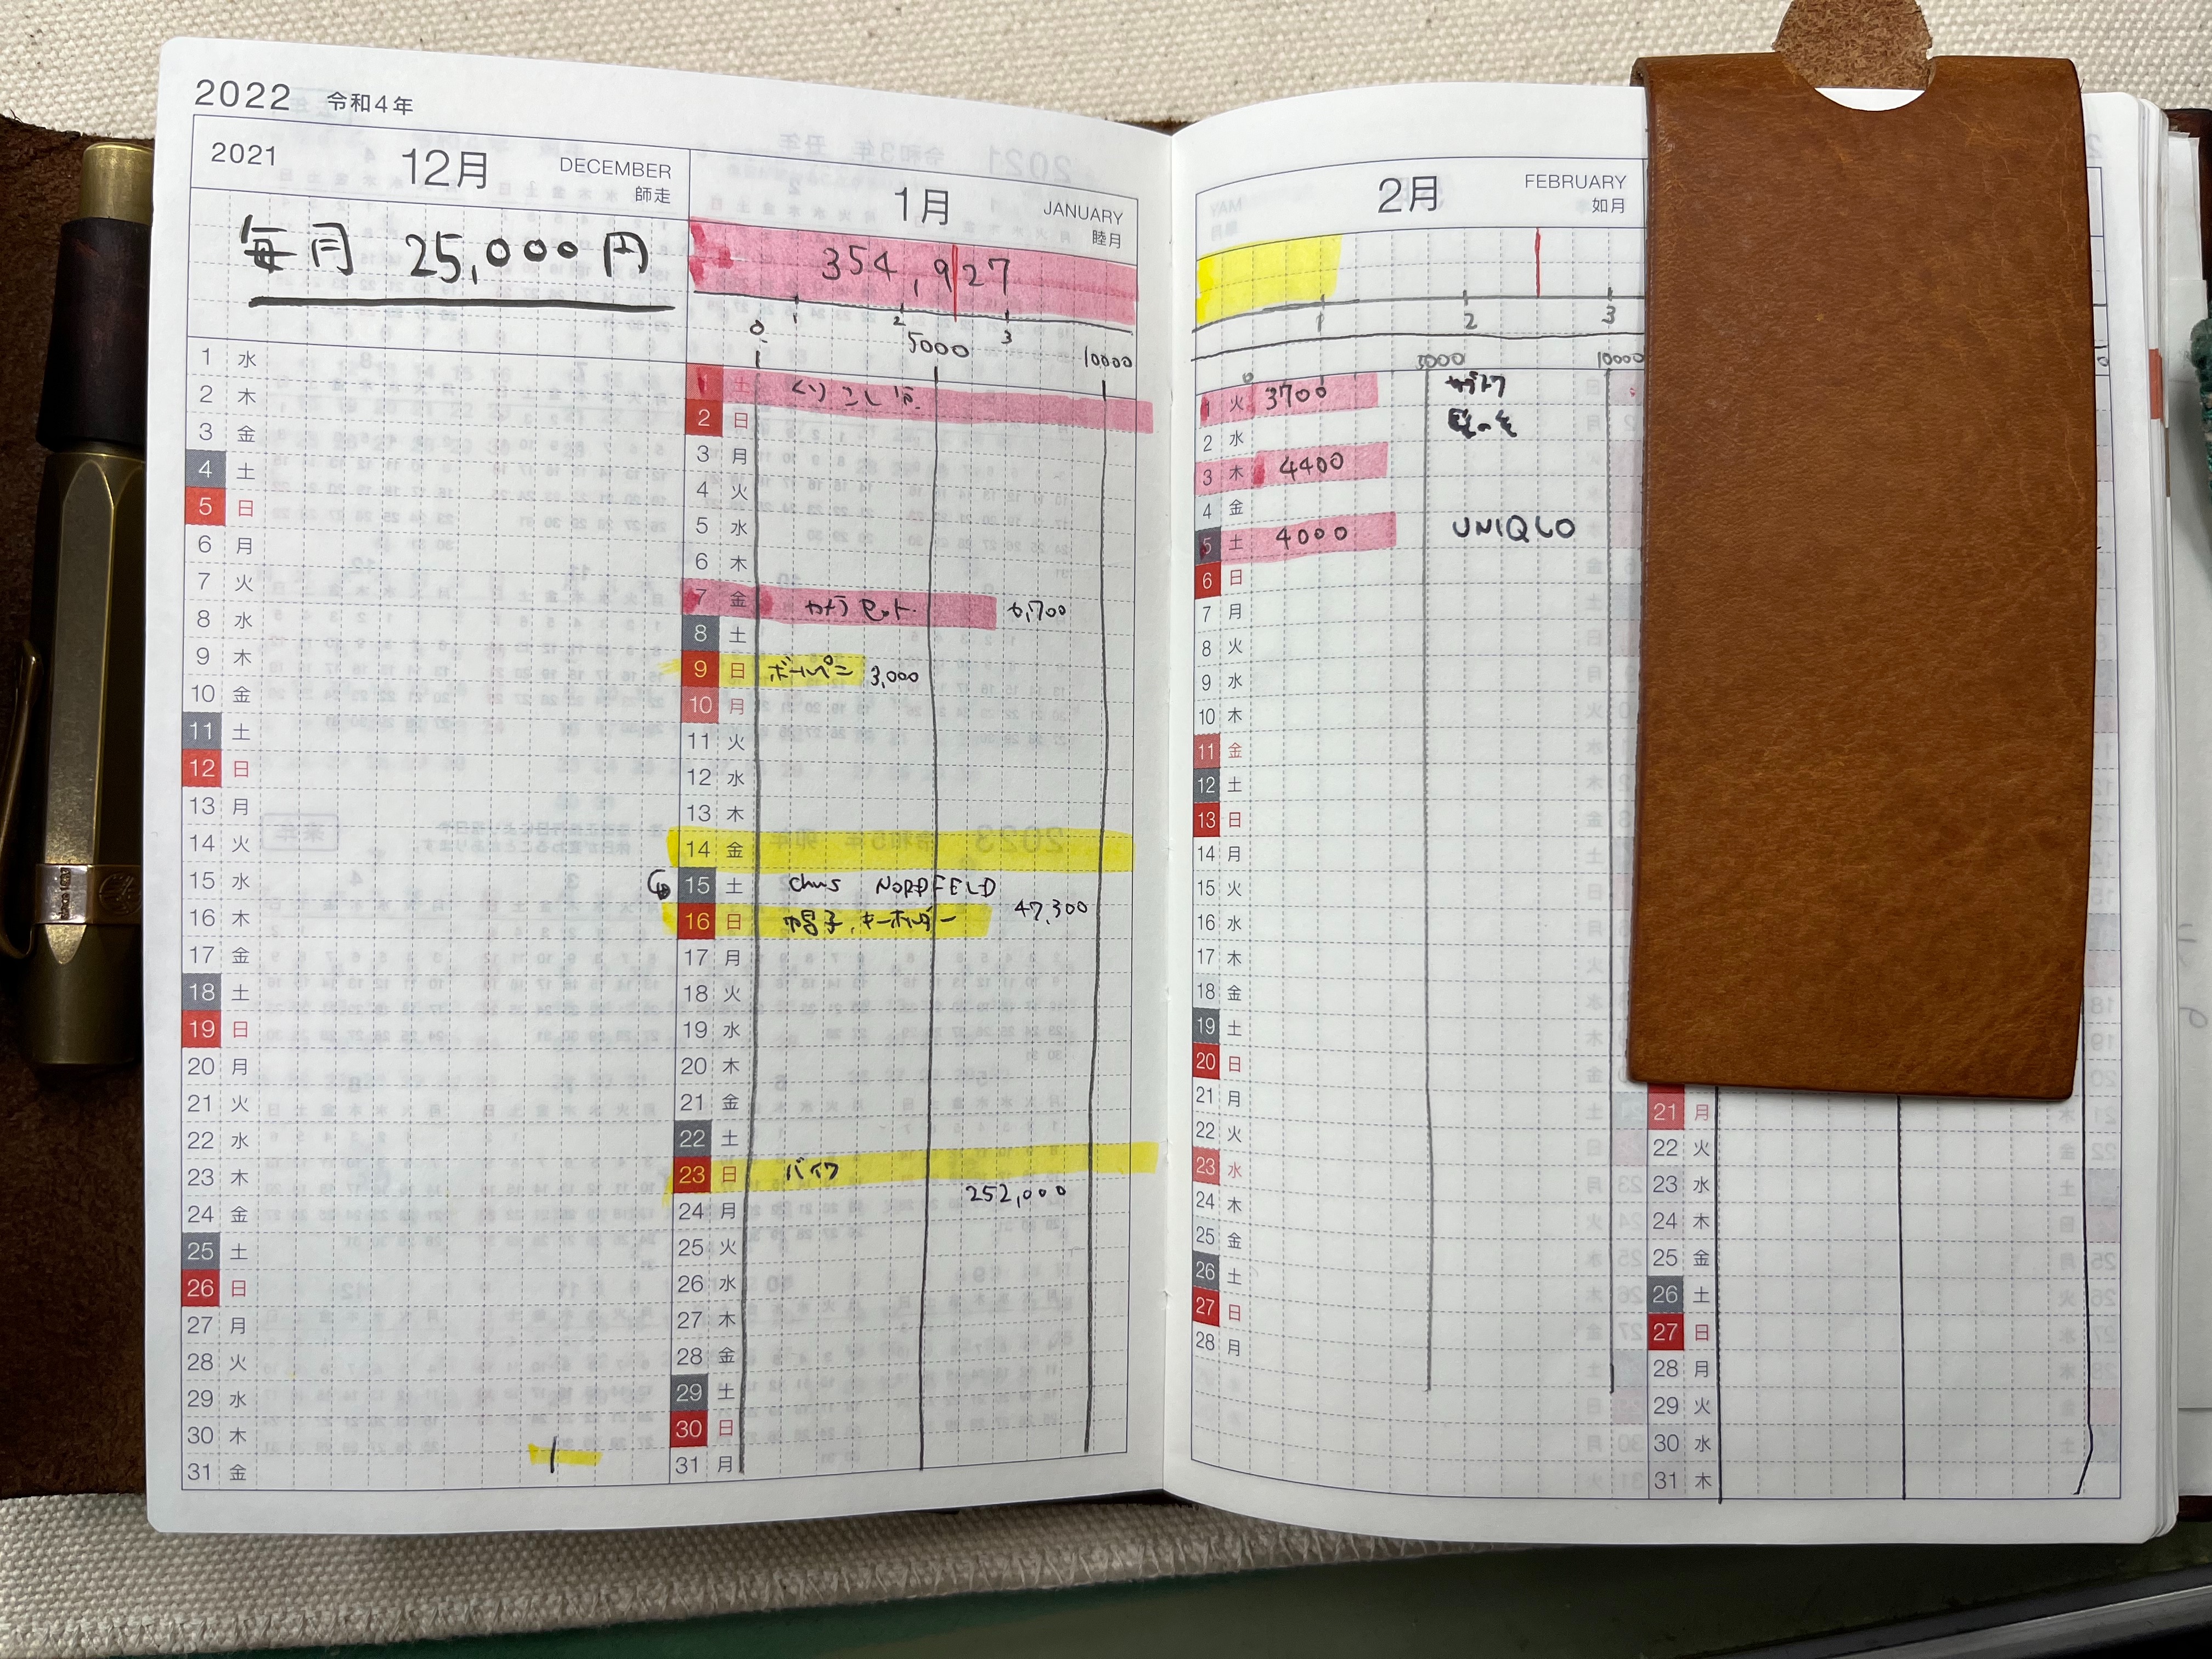 2022 令和4年
2021 12月 DECEMBER 師走
毎月 25,000円
1 水
2 木
3 金
4 土
5 日
6 月
7 火
8 水
9 木
10 金
11 土
12 日
13 月
14 火
15 水
16 木
17 金
18 土
19 日
20 月
21 火
22 水
23 木
24 金
25 土
26 日
27 月
28 火
29 水
30 木
31 金
1月 JANUARY 睦月
354,927
1 2 3
0 5000 10000
1 土 くりこし
2 日
3 月
4 火
5 水
6 木
7 金 カメラセット 6,700
8 土
9 日 ボールペン 3,000
10 月
11 火
12 水
13 木
14 金
15 土 chums NORDFELD
16 日 帽子、キーホルダー 47,300
17 月
18 火
19 水
20 木
21 金
22 土
23 日 バイク
252,000
24 月
25 火
26 水
27 木
28 金
29 土
30 日
31 月
2月 FEBRUARY 如月
1 2 3
0 5000 10000
1 火 3700
2 水
3 木 4400
4 金
5 土 4000 UNIQLO
6 日
7 月
8 火
9 水
10 木
11 金
12 土
13 日
14 月
15 火
16 水
17 木
18 金
19 土
20 日
21 月
22 火
23 水
24 木
25 金
26 土
27 日
28 月
21 月
22 火
23 水
24 木
25 金
26 土
27 日
28 月
29 火
30 水
31 木